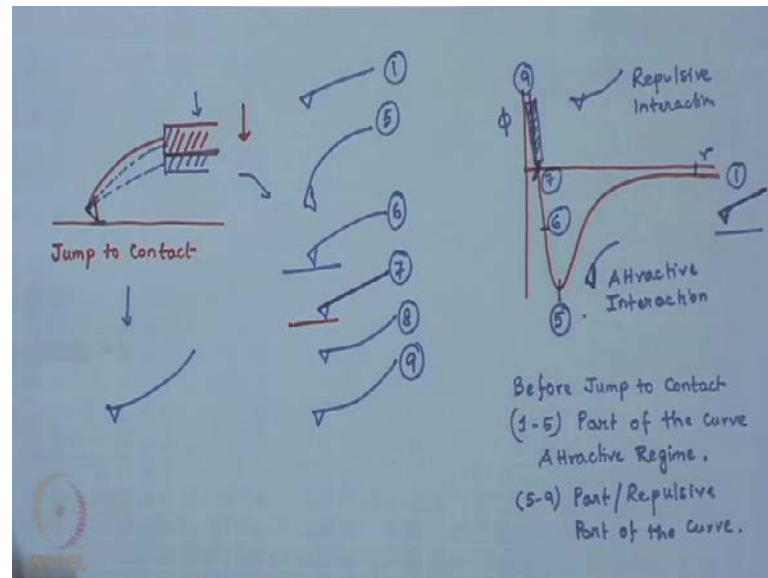 Jump to Contact
1
5
6
7
8
9
9
ϕ
Repulsive
Interaction
r
1
7
6
5
Attractive
Interaction
Before Jump to Contact
(1-5) Part of the curve
Attractive Regime.
(5-9) Part/Repulsive
Part of the Curve.
NPTEL